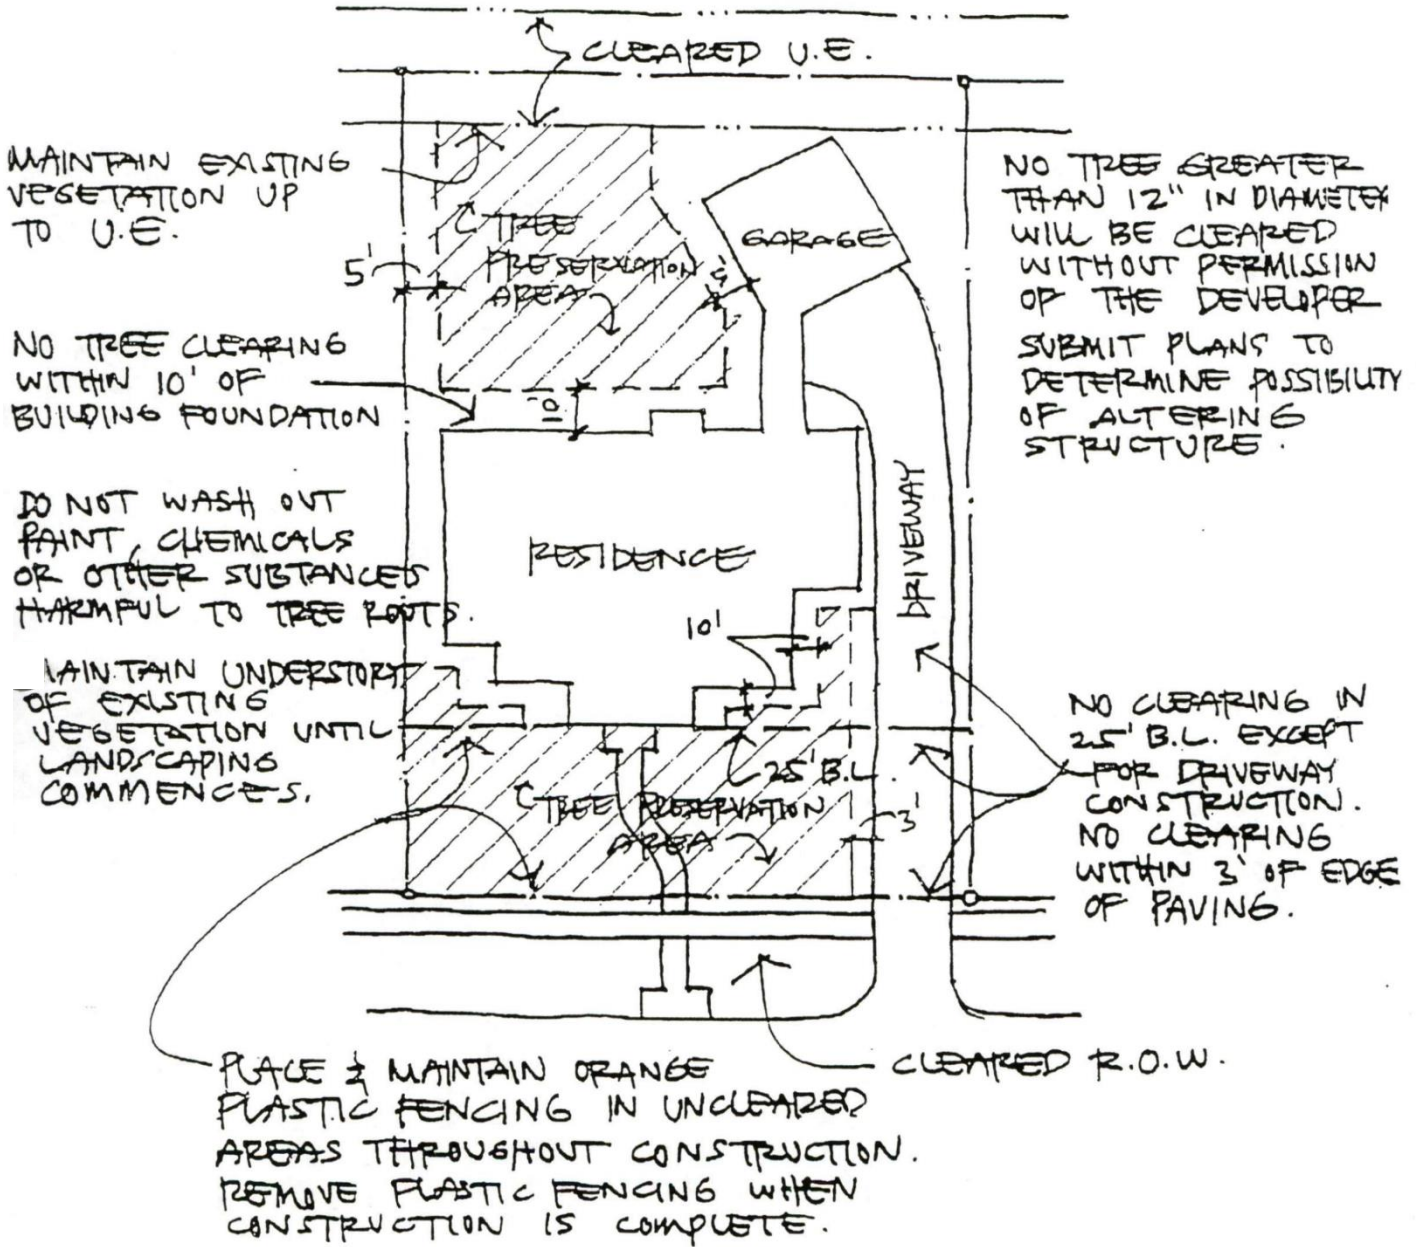 CLEARED U.E.
MAINTAIN EXISTING
VEGETATION UP
TO U.E.
NO TREE GREATER
THAN 12" IN DIAMETER
WILL BE CLEARED
WITHOUT PERMISSION
OF THE DEVELOPER
SUBMIT PLANS TO
DETERMINE POSSIBILITY
OF ALTERING
STRUCTURE.
TREE
PRESERVATION
AREA
GARAGE
5'
NO TREE CLEARING
WITHIN 10' OF
BUILDING FOUNDATION
10
DO NOT WASH OUT
PAINT, CHEMICALS
OR OTHER SUBTANCES
HARMFUL TO TREE ROOTS.
RESIDENCE
DRIVEWAY
10'
AINTAIN UNDERSTORY
OF EXISTING
VEGETATION UNTIL
LANDSCAPING
COMMENCES.
25' B.L.
TREE PRESERVATION
AREA
3'
NO CLEARING IN
25' B.L. EXCEPT
FOR DRIVEWAY
CONSTRUCTION.
NO CLEARING
WITHIN 3' OF EDGE
OF PAVING.
PLACE & MAINTAIN ORANGE
PLASTIC FENCING IN UNCLEARED
AREAS THROUGHOUT CONSTRUCTION.
REMOVE PLASTIC FENCING WHEN
CONSTRUCTION IS COMPLETE.
CLEARED R.O.W.